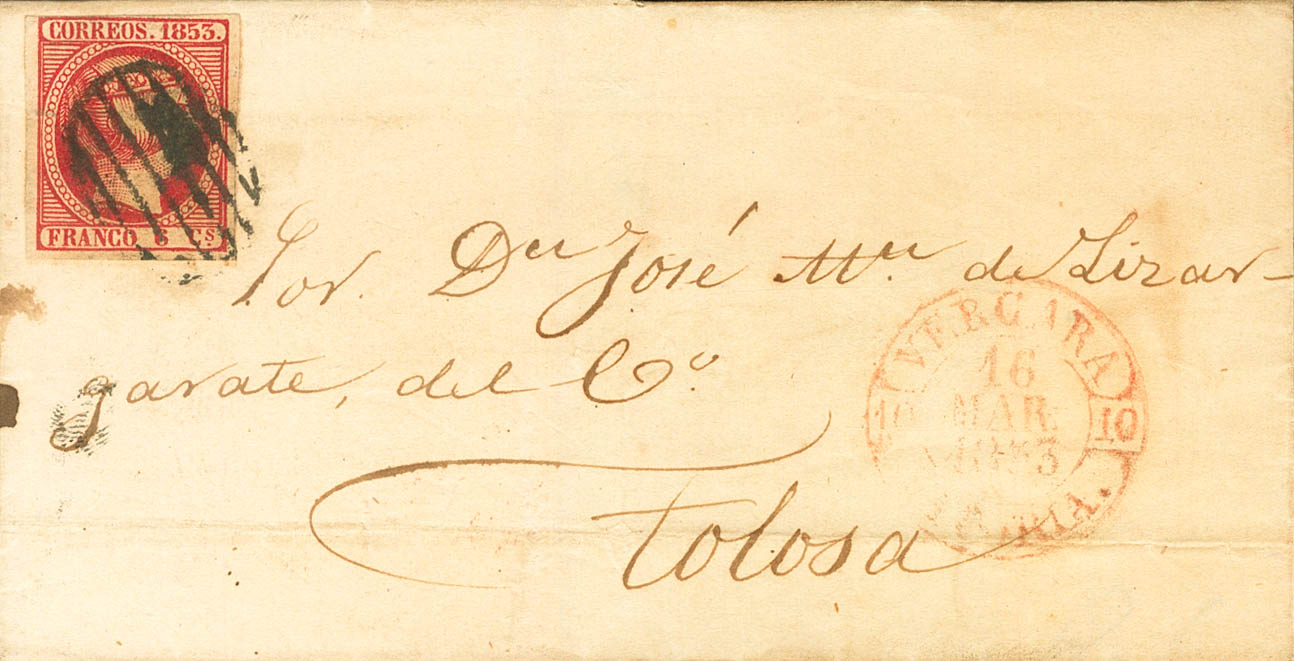 CORREOS. 1853.
FRANCO 6 Cs
Sor. Dn José Ma. de Lizar-
garate, del Co.
Tolosa
VERGARA
16
MAR
1853
10 10